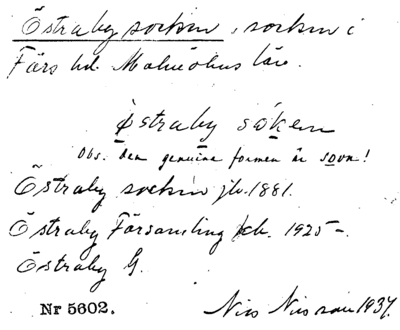 Östraby socken, socken i
Färs hd. Malmöhus län.
Östraby sóken
Obs. den genuine formen är sovn!
Östraby socken jb. 1881.
Östraby Församling kb. 1925-.
Östraby G.
Nr 5602. Nils Nilsson 1937.